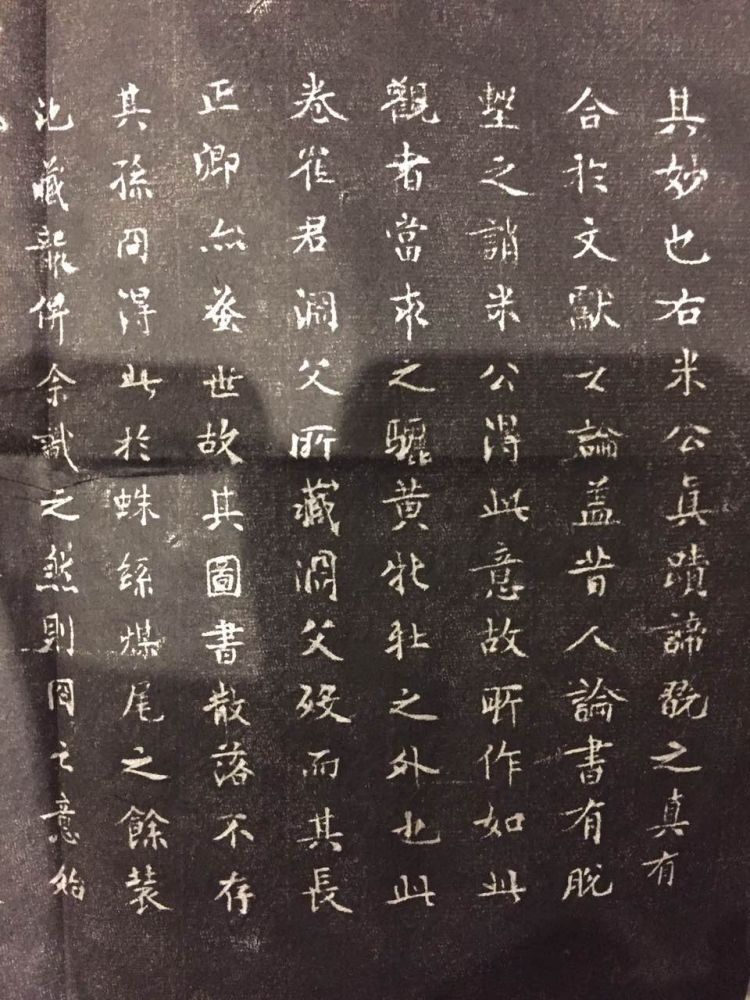 其妙也右米公真蹟諦翫之真有
合於文獻之論盖昔人論書有脫
墼之誚米公得此意故所作如此
觀者當求之驪黃牝牡之外也此
卷崔君潤父所藏潤父歿而其長
正卿亦蚤世故其圖書散落不存
其孫冏得此於蛛絲煤尾之餘裝
池藏龍併余識之然則冏之意殆